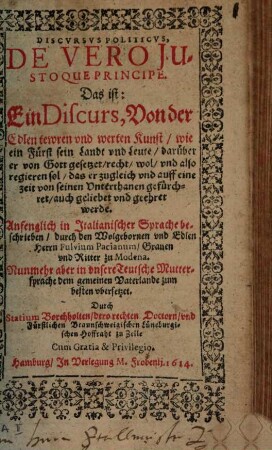 DISCVRSVS POLITICVS,
DE VERO JU-
STOQUE PRINCIPE.
Das ist:
Ein Discurs, Von der
Edlen tewren vnd werten Kunst / wie
ein Fürst sein Landt vnd Leute / darüber
er von Gott gesetzet / recht / wol / vnd also
regieren sol / das er zugleich vnd auff eine
zeit von seinen Vnterthanen gefürch-
tet / auch geliebet vnd geehret
werde.
Anfenglich in Italianischer Sprache be-
schrieben / durch den Wolgebornen vnd Edlen
Herrn Fulvium Pacianum / Grauen
vnd Ritter zu Modena.
Nunmehr aber in vnsere Teutsche Mutter-
sprache dem gemeinen Vaterlande zum
besten vbersetzet.
Durch
Statium Borcholten / dero rechten Doctorn / vnd
Fürstlichen Braunschweigischen Lüneburgi-
schen Hoffraht zu Zelle.
Cum Gratia & Privilegio.
Hamburg / In Verlegung M. Frobenij. 1614.